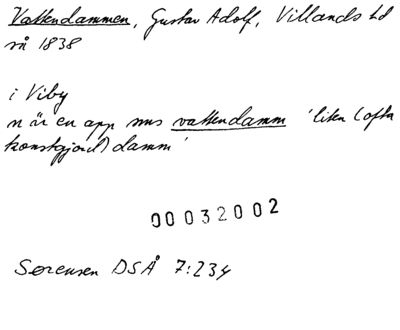 Vattendammen, Gustav Adolf, Villands hd
så 1838
i Viby
n är en app ms vattendamm 'liten (ofta
konstgjord) damm'
00032002
Sørensen DSÅ 7:234